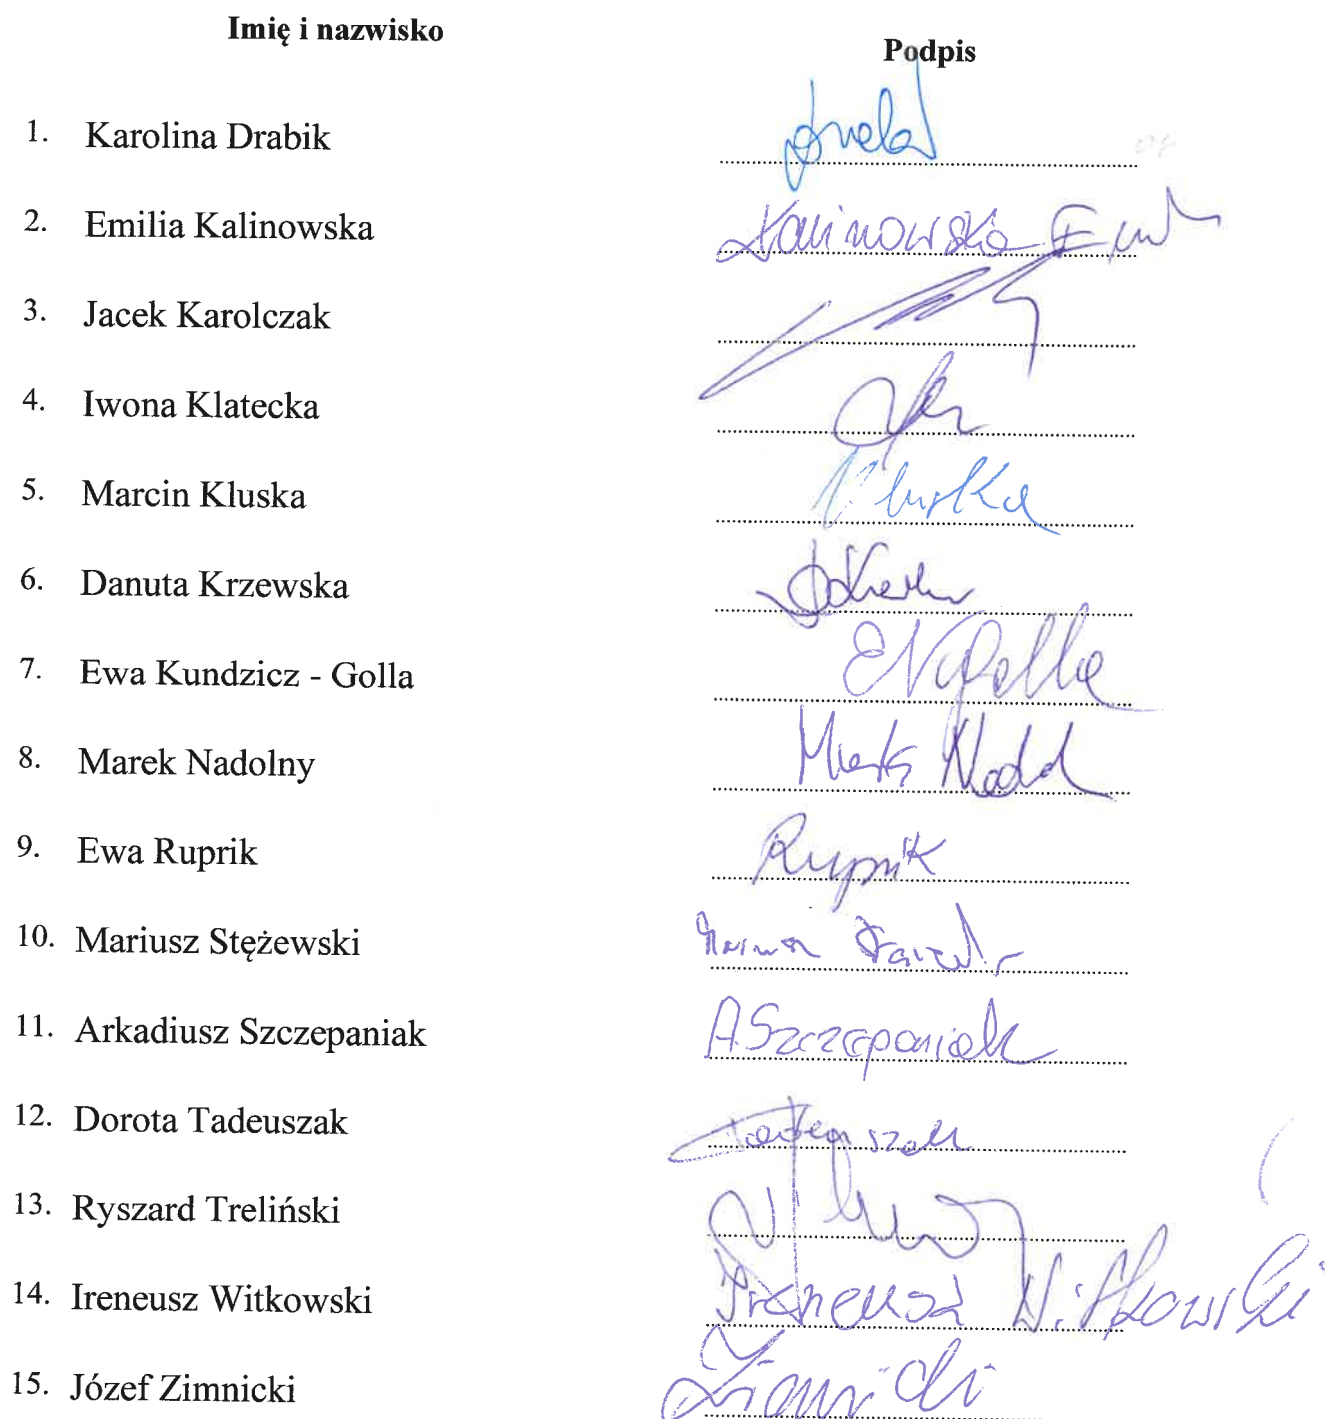 Imię i nazwisko
Podpis
1. Karolina Drabik
2. Emilia Kalinowska Kalinowska
3. Jacek Karolczak
4. Iwona Klatecka
5. Marcin Kluska Kluska
6. Danuta Krzewska
7. Ewa Kundzicz - Golla
8. Marek Nadolny
9. Ewa Ruprik Ruprik
10. Mariusz Stężewski
11. Arkadiusz Szczepaniak A. Szczepaniak
12. Dorota Tadeuszak Tadeuszak
13. Ryszard Treliński
14. Ireneusz Witkowski Ireneusz Witkowski
15. Józef Zimnicki